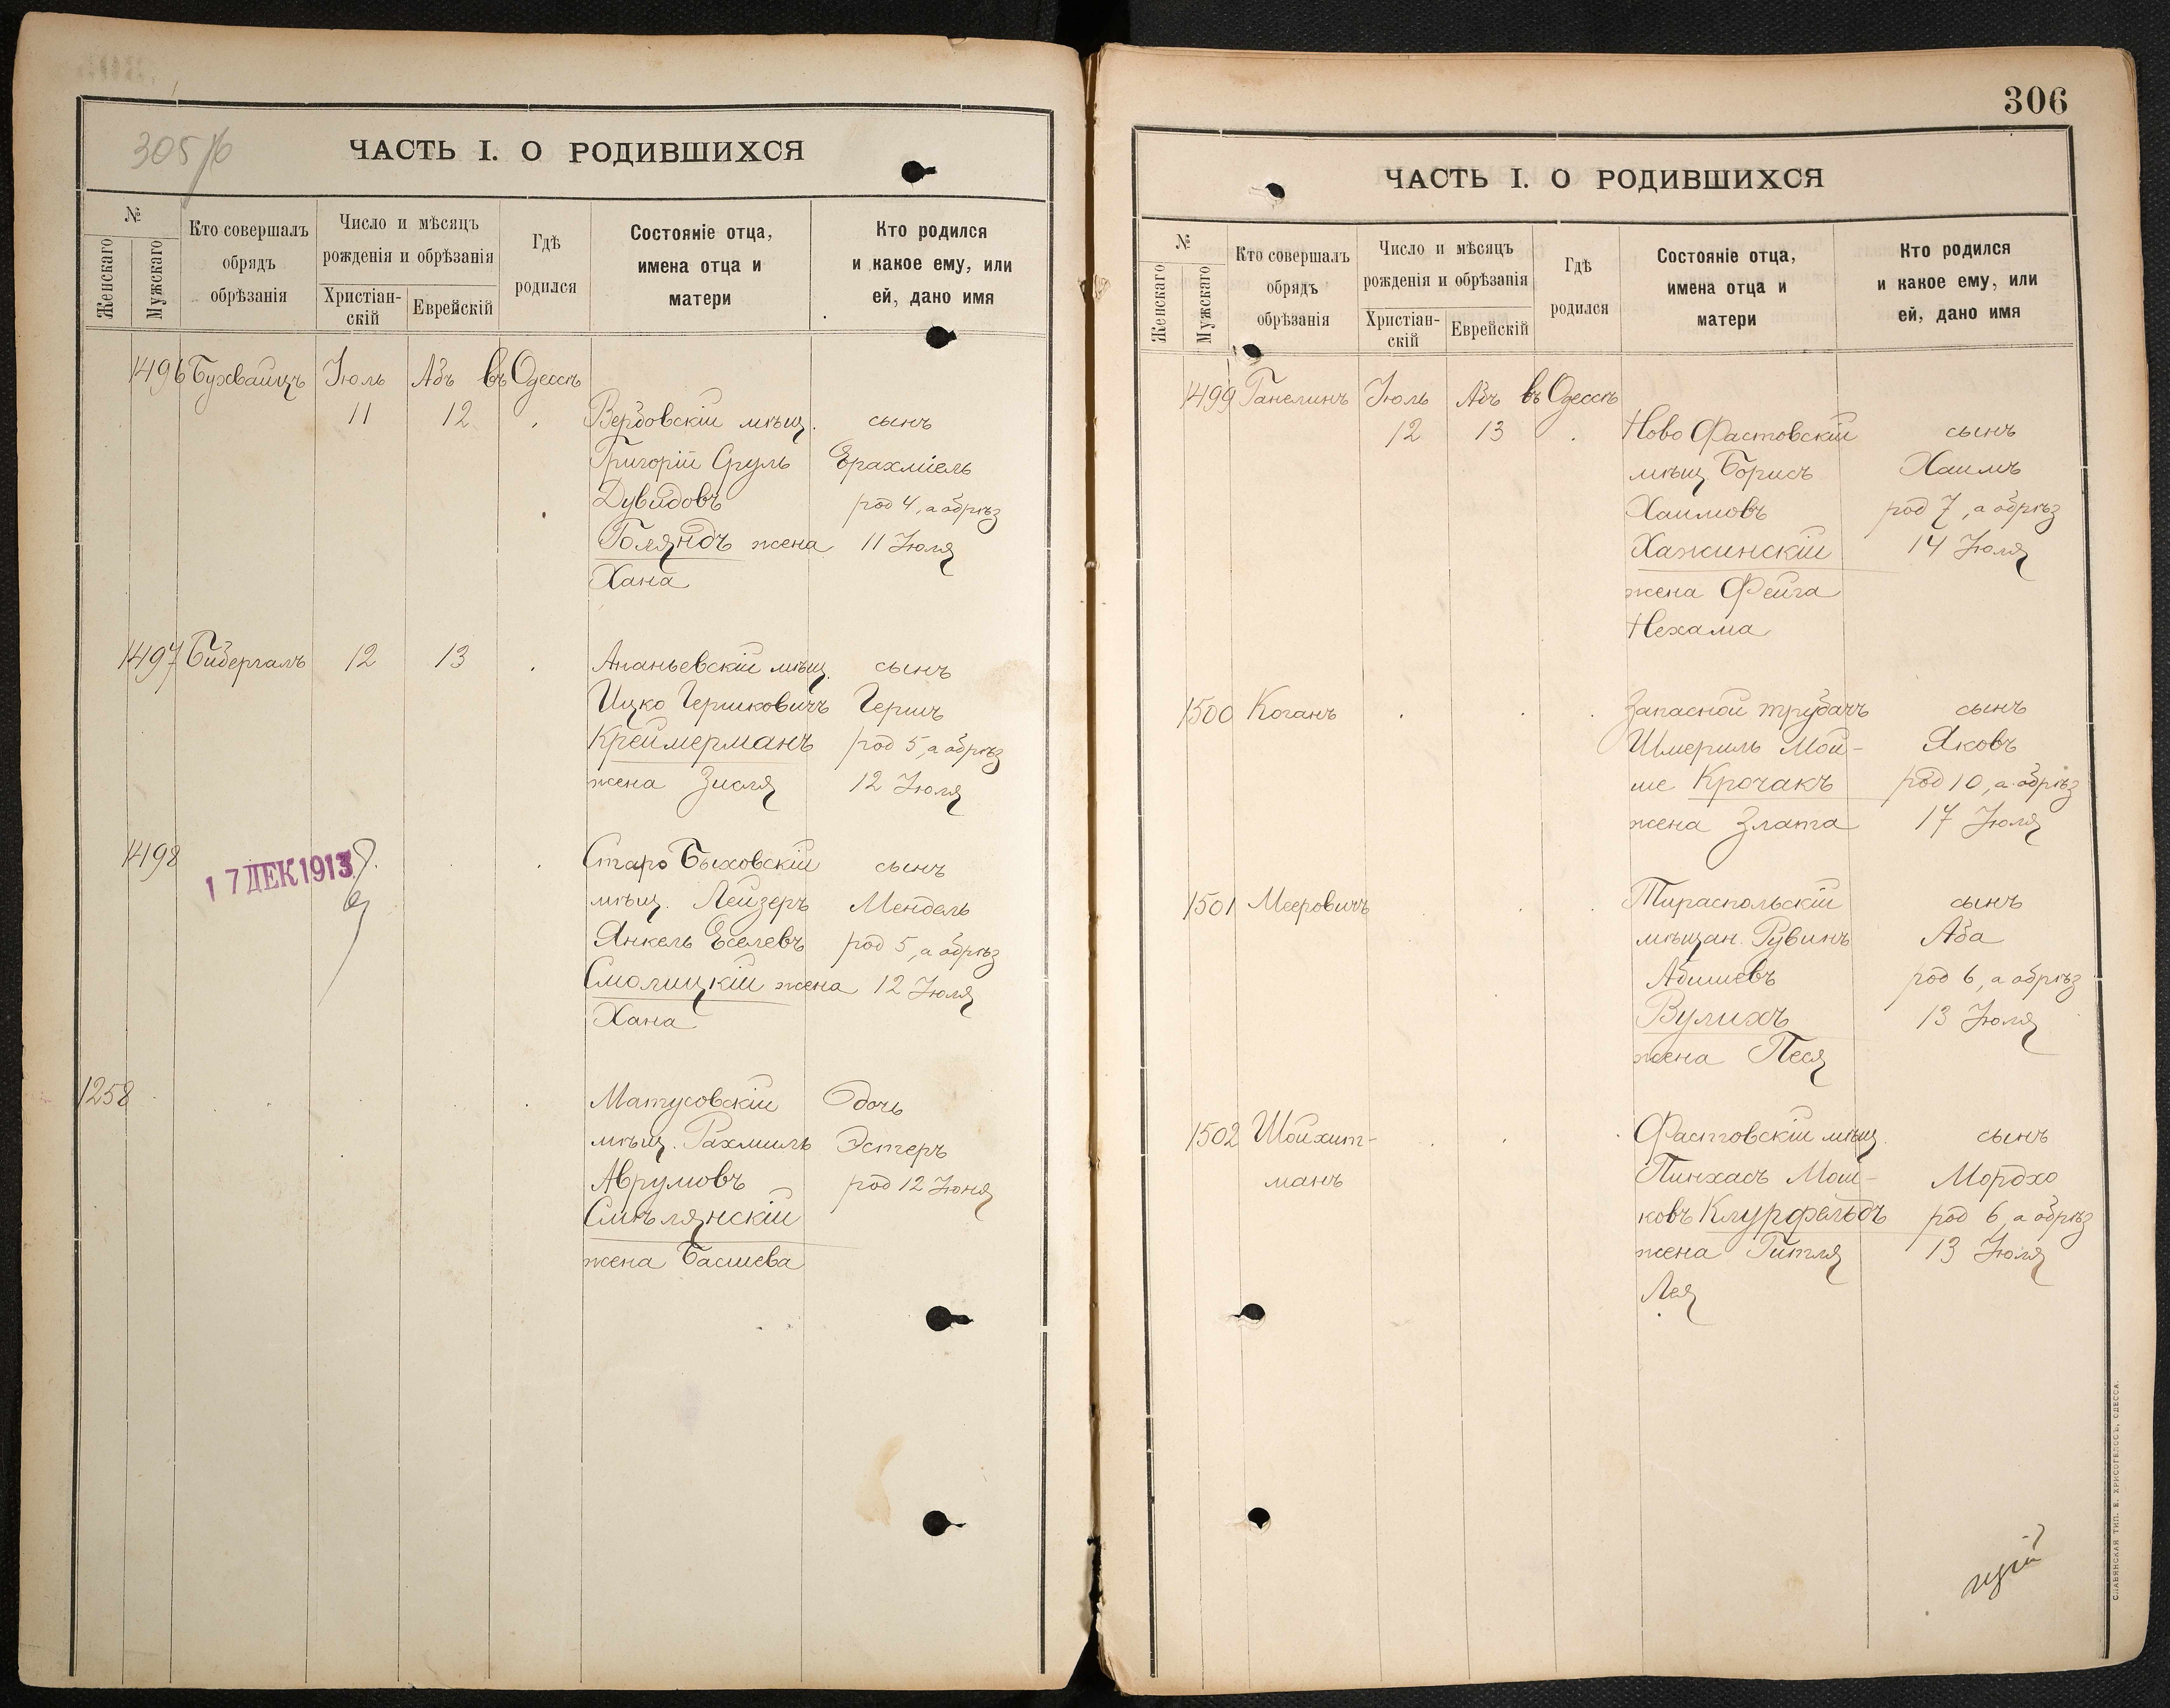 305/б
ЧАСТЬ I. О РОДИВШИХСЯ
№
Женскаго
Мужскаго
Кто совершалъ
обрядъ
обрѣзанія
Число и мѣсяцъ
рожденія и обрѣзанія
Христіан-
скій
Еврейскій
Гдѣ
родился
Состояніе отца,
имена отца и
матери
Кто родился
и какое ему, или
ей, дано имя
1496 Бухвайцъ Іюль Абъ въ Одессѣ
11 12 Вербовскій мѣщ. сынъ
Григорій Сруль Ерахміель
Дувидовъ род 4, а обрѣз
Голяндъ жена 11 Іюля
Хана
1497 Бидергалъ 12 13 Ананьевскій мѣщ. сынъ
Ицко Гершковичъ Гершъ
Креймерманъ род 5, а обрѣз
жена Зисля 12 Іюля
1498 Старо Быховскій сынъ
17 ДЕК 1913
мѣщ. Лейзеръ Мендель
Янкель Еселевъ род 5, а обрѣз
Смолицкій жена 12 Іюля
Хана
1258 Матусовскій дочь
мѣщ. Рахмиль Эстеръ
Аврумовъ род 12 Іюня
Смѣлянскій
жена Басшева
306
ЧАСТЬ I. О РОДИВШИХСЯ
№
Женскаго
Мужскаго
Кто совершалъ
обрядъ
обрѣзанія
Число и мѣсяцъ
рожденія и обрѣзанія
Христіан-
скій
Еврейскій
Гдѣ
родился
Состояніе отца,
имена отца и
матери
Кто родился
и какое ему, или
ей, дано имя
1499 Ганелинъ Іюль Абъ въ Одессѣ
12 13 Ново Фастовскій сынъ
мѣщ. Борисъ Хаимъ
Хаимовъ род 7, а обрѣз
Хажинскій 14 Іюля
жена Фейга
Нехама
1500 Коганъ Запасной трубачъ сынъ
Шмериль Мой- Яковъ
ше Крочакъ род 10, а обрѣз
жена Злата 17 Іюля
1501 Мееровичъ Тираспольскій сынъ
мѣщан. Рувинъ Аба
Абишевъ род 6, а обрѣз
Вулихъ 13 Іюля
жена Песя
1502 Шойхит- Фастовскій мѣщ. сынъ
манъ Пинхасъ Мош- Мордхо
ковъ Клурфельдъ род 6, а обрѣз
жена Гитля 13 Іюля
Лея
СЛАВЯНСКАЯ ТИП. Е. ХРИСОГЕЛОСЪ, ОДЕССА.